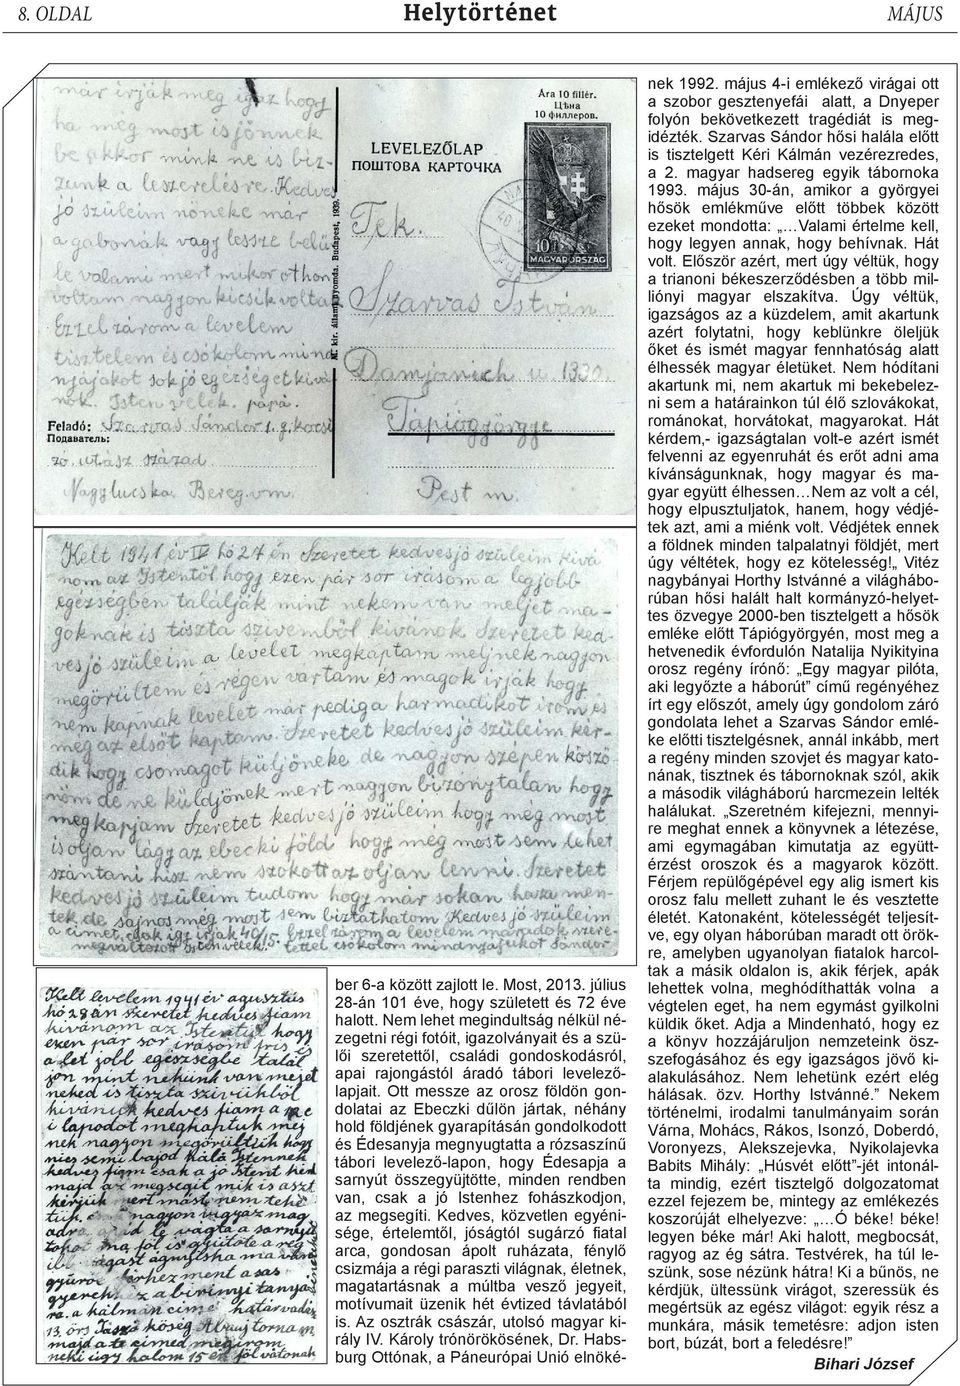 8. OLDAL
Helytörténet
MÁJUS
már írják meg igaz hogy
ha még most is jönnek
be akkor mink ne is biz-
zunk a leszerelésre. Kedves
jó szüleim nöneke már
a gabonák vagy lessze belü
le valami mert mikor othon
voltam nagyon kicsik voltak
Ezzel zárom a levelem
tisztelem és csókolom mind
nyájakot sok jó egézséget kivá
nok. Isten velek. pápá.
Feladó: Szarvas Sándor 1. g. kocsi
Подаватель:
zó. utász század.
Nagylucska. Bereg. vm.
M. kir. állami nyomda. Budapest, 1939.
Ára 10 fillér.
Цѣна
10 филлеров.
LEVELEZŐLAP
ПОШТОВА КАРТОЧКА
10
MAGYARORSZÁG
Tek.
Szarvas István
Damjanich u. 1330.
Tápiógyörgye
Pest m.
Kelt 1941 év IV hó 27 én Szeretet kedves jó szüleim kivá
nom az Istentöl hogy ezen pár sor irásom a legjobb
egézségben találják mint nekem van meljet ma-
goknak is tiszta szivemböl kivánok Szeretet ked-
ves jó szüleim a levelet megkaptam meljnek nagyon
megörültem és régen vartam és magok irják hogy
nem kapnak levelet már pediga harmadikot irom és
még az elsöt kaptam. Szeretet kedves jó szüleim kér-
dik hogy csomagot küljöneke de nagyon szépen köszö-
nöm de ne küldjönek mert nagyon bizonytalan hogy
megkapjam Szeretet kedves jó szüleim hogy még most
is oljan lágy az ebecki föld hogy még most sem lehet
szantani hisz nem szokott az oljan lenni. Szeretet
kedves jó szüleim tudom hogy már sokan haza men-
tek de sajnos még most sem biztathatom Kedves jó szüleim
a cimet csak igy irjak 40/15. Ezzel zárom a levelem maradok szere-
megváltozot Isten velek. tettel csókolom mindnyájukot Sándor
Kelt levelem 1941 év agusztús
hó 28 án szeretet kedves fiam
kivánom az Istentül hogy
ezen pár sor irásom fris
a let jobb egészségbe talál
jon mint nekünk van mejet
neked is tiszta szivünkböl
kivánunk kedves fiam a
i lapodot megkaptuk mej
nek nagyon megörültünk hogy
nics semi bajod hálá Istennek
kedves fiam csak a jó Istent kérd
majd az megsegil mik is aszt
kérjük mert mást nem tehe
tük. nagyon vigyaz mag
adra
ber 6-a között zajlott le. Most, 2013. július
28-án 101 éve, hogy született és 72 éve
halott. Nem lehet megindultság nélkül né-
zegetni régi fotóit, igazolványait és a szü-
lői szeretettől, családi gondoskodásról,
apai rajongástól áradó tábori levelező-
lapjait. Ott messze az orosz földön gon-
dolatai az Ebeczki dűlön jártak, néhány
hold földjének gyarapításán gondolkodott
és Édesanyja megnyugtatta a rózsaszínű
tábori levelező-lapon, hogy Édesapja a
sarnyút összegyűjtötte, minden rendben
van, csak a jó Istenhez fohászkodjon,
az megsegíti. Kedves, közvetlen egyéni-
sége, értelemtől, jóságtól sugárzó fiatal
arca, gondosan ápolt ruházata, fénylő
csizmája a régi paraszti világnak, életnek,
magatartásnak a múltba vesző jegyeit,
motívumait üzenik hét évtized távlatából
is. Az osztrák császár, utolsó magyar ki-
rály IV. Károly trónörökösének, Dr. Habs-
burg Ottónak, a Páneurópai Unió elnöké-
nek 1992. május 4-i emlékező virágai ott
a szobor gesztenyefái alatt, a Dnyeper
folyón bekövetkezett tragédiát is meg-
idézték. Szarvas Sándor hősi halála előtt
is tisztelgett Kéri Kálmán vezérezredes,
a 2. magyar hadsereg egyik tábornoka
1993. május 30-án, amikor a györgyei
hősök emlékműve előtt többek között
ezeket mondotta: „…Valami értelme kell,
hogy legyen annak, hogy behívnak. Hát
volt. Először azért, mert úgy véltük, hogy
a trianoni békeszerződésben a több mil-
liónyi magyar elszakítva. Úgy véltük,
igazságos az a küzdelem, amit akartunk
azért folytatni, hogy keblünkre öleljük
őket és ismét magyar fennhatóság alatt
élhessék magyar életüket. Nem hódítani
akartunk mi, nem akartuk mi bekebelez-
ni sem a határainkon túl élő szlovákokat,
románokat, horvátokat, magyarokat. Hát
kérdem,- igazságtalan volt-e azért ismét
felvenni az egyenruhát és erőt adni ama
kívánságunknak, hogy magyar és ma-
gyar együtt élhessen…Nem az volt a cél,
hogy elpusztuljatok, hanem, hogy védjé-
tek azt, ami a miénk volt. Védjétek ennek
a földnek minden talpalatnyi földjét, mert
úgy véltétek, hogy ez kötelesség!„ Vitéz
nagybányai Horthy Istvánné a világhábo-
rúban hősi halált halt kormányzó-helyet-
tes özvegye 2000-ben tisztelgett a hősök
emléke előtt Tápiógyörgyén, most meg a
hetvenedik évfordulón Natalija Nyikityina
orosz regény írónő: „Egy magyar pilóta,
aki legyőzte a háborút” című regényéhez
írt egy előszót, amely úgy gondolom záró
gondolata lehet a Szarvas Sándor emlé-
ke előtti tisztelgésnek, annál inkább, mert
a regény minden szovjet és magyar kato-
nának, tisztnek és tábornoknak szól, akik
a második világháború harcmezein lelték
halálukat. „Szeretném kifejezni, mennyi-
re meghat ennek a könyvnek a létezése,
ami egymagában kimutatja az együtt-
érzést oroszok és a magyarok között.
Férjem repülőgépével egy alig ismert kis
orosz falu mellett zuhant le és vesztette
életét. Katonaként, kötelességét teljesít-
ve, egy olyan háborúban maradt ott örök-
re, amelyben ugyanolyan fiatalok harcol-
tak a másik oldalon is, akik férjek, apák
lehettek volna, meghódíthatták volna a
végtelen eget, ha nem egymást gyilkolni
küldik őket. Adja a Mindenható, hogy ez
a könyv hozzájáruljon nemzeteink ösz-
szefogásához és egy igazságos jövő ki-
alakulásához. Nem lehetünk ezért elég
hálásak. özv. Horthy Istvánné.” Nekem
történelmi, irodalmi tanulmányaim során
Várna, Mohács, Rákos, Isonzó, Doberdó,
Voronyezs, Alekszejevka, Nyikolajevka
Babits Mihály: „Húsvét előtt” -jét intonál-
ta mindig, ezért tisztelgő dolgozatomat
ezzel fejezem be, mintegy az emlékezés
koszorúját elhelyezve: „…Ó béke! béke!
legyen béke már! Aki halott, megbocsát,
ragyog az ég sátra. Testvérek, ha túl le-
szünk, sose nézünk hátra! Ki a bűnös, ne
kérdjük, ültessünk virágot, szeressük és
megértsük az egész világot: egyik rész a
munkára, másik temetésre: adjon isten
bort, búzát, bort a feledésre!”
Bihari József